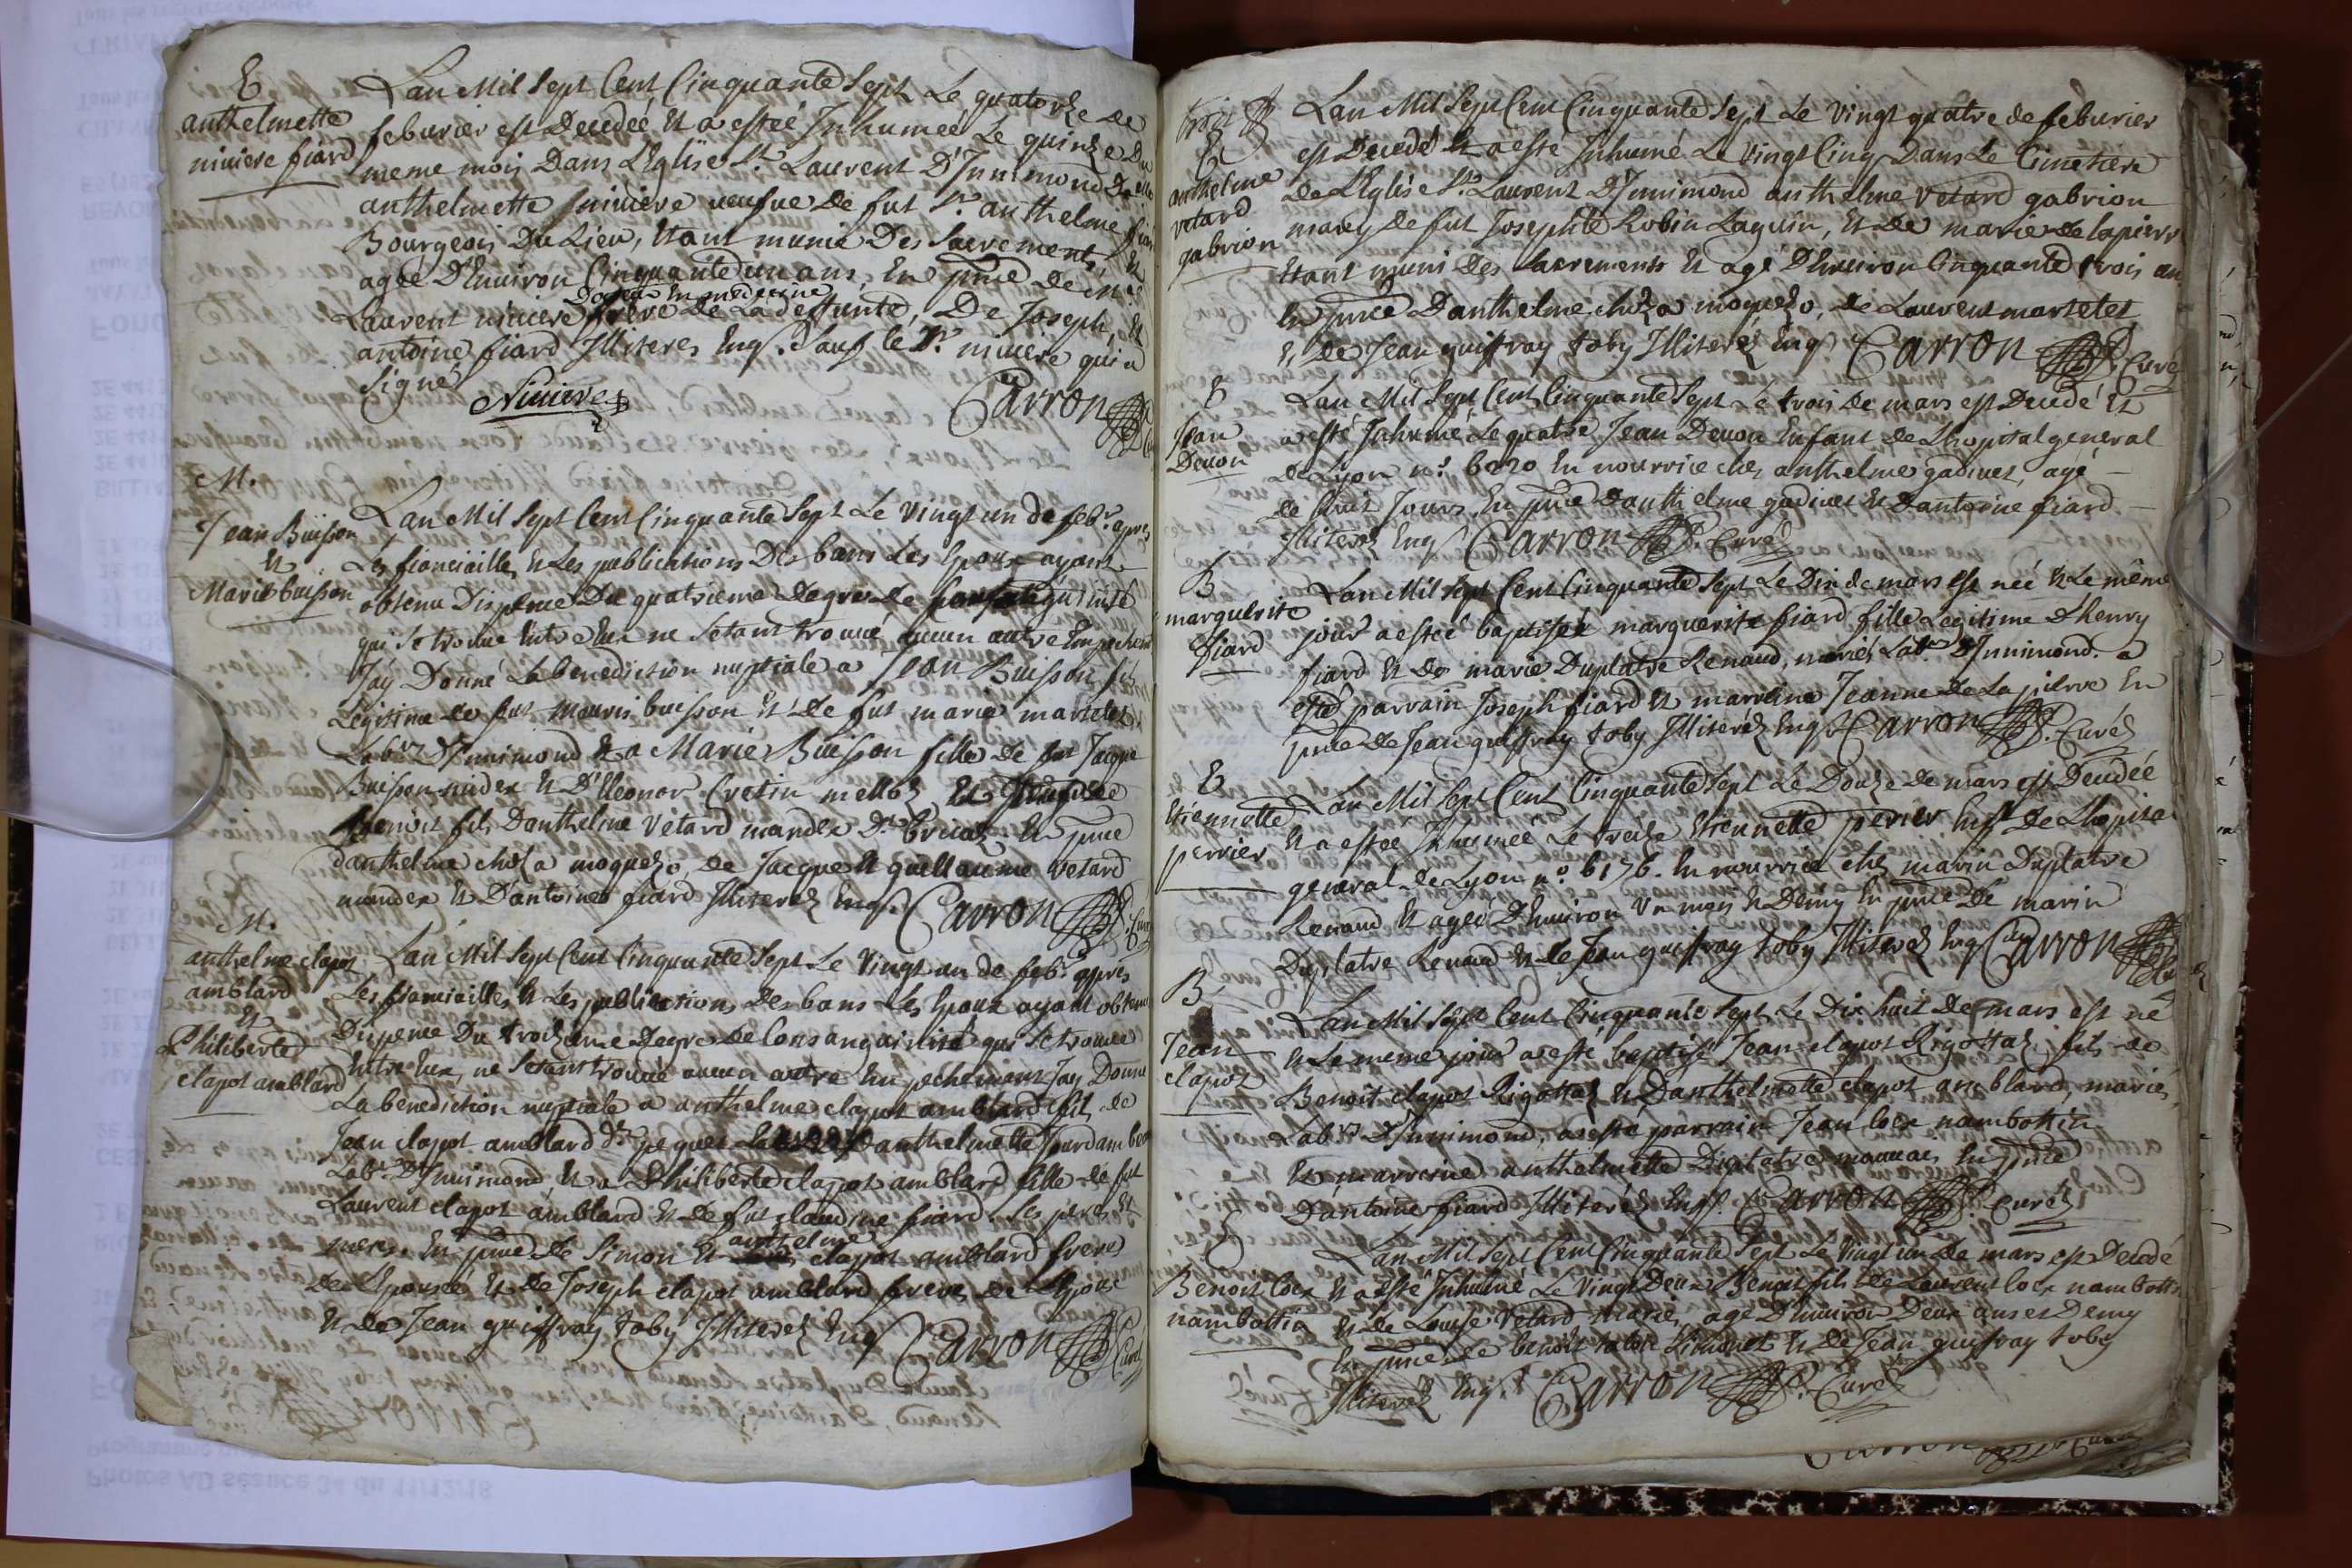 E
anthelmette
niviere fiard
Lan Mil Sept Cent Cinquante Sept Le quatorze de
feburier est Decedeé Et a estéé Inhumeé Le quinze Du
meme mois Dans L'Eglise St. Laurent D'Innimond
anthelmette niviere veufue De fut Sr. anthelme
Bourgeois Du Lieu, Etant munie Des Sacrements, Et
ageé D'Enuiron Cinquante un ans, En pnce de
Docteur En medecine
Laurent niviere frere De La deffunte, De Joseph, Et
antoine fiard Illiteres Enqs. Sauf le Sr. niviere qui a
Signé
Niviere
Carron
M.
Jean Buisson
Et
Marie buisson
Lan Mil Sept Cent Cinquante Sept Le Vingt un de febr. apres
Les fianciailles Et Les publications Des bans Les Epoux ayant
obtenu Dispense Du quatrieme Degré de Consanguinité
qui Se trouue Entre Eux ne Setant trouué aucun autre Empechement
J'ay Donné La benediction nuptiale a Jean Buisson fils
Legitime de fut Mauris buisson Et De fut marie martelet
Labrs D'Innimond Et a Marie Buisson fille De fut Jacque
Buisson mider Et D'Eleonor Cretin melloz, Et
Benoit fils Danthelme Vetard mander Dt. En pnce
danthelme choza moquezo, de Jacque Et guellaume Vetard
mander Et D'antoine fiard Illiterez Enqs. Carron Curé
M.
anthelme clapot
amblard
Et
Philiberte
clapot amblard
Lan Mil Sept Cent Cinquante Sept Le Vingt un de febr. apres
Les fianciailles Et Les publications Des bans Les Epoux ayant obtenu
Dispense Du troizieme Degre De Consanguinité qui Se trouue
Entre Eux, ne Setant trouué aucun autre Empechement Jay Donné
La benediction nuptiale a anthelme clapot amblard fils de
Jean clapot amblard Dt. Et Danthelmette
Labrs D'Innimond, Et a Philiberte clapot amblard fille de fut
Laurent clapot amblard Et de fut claudine fiard Ses peres Et
anthelme
meres. En pnce de Simon Et clapot amblard freres
De L'Epousée, Et de Joseph clapot amblard frere de L'Epoux
Et de Jean guiffray toby Illiterez Enqs Carron Curé
E
anthelme
vetard
gabrion
Lan Mil Sept Cent Cinquante Sept Le Vingt quatre de feburier
est Decedé Et a esté Inhumé Le Vingt Cinq Dans Le Cimetiere
de L'Eglise St. Laurent D'Innimond anthelme Vetard gabrion
marey de fut Josephte Robin Laguin, Et De marie de lapierre
Etant muni Des Sacrements Et agé D'Enuiron Cinquante trois ans
En pnce Danthelme choza moquezo, de Laurent martelet
Et de Jean guiffray toby Illiterez Enqs Carron Curé
E
Jean
Deuon
Lan Mil Sept Cent Cinquante Sept Le trois de mars est Decedé Et
a esté Inhumé Le quatre Jean Deuon Enfant de Lhopital general
de Lyon no. 6020 En nourrice chez anthelme gadinet, agé
de huit Jours, En pnce Danthelme gadinet Et Dantoine fiard
Illiterez Enqs Carron Curé
B
marguerite
fiard
Lan Mil Sept Cent Cinquante Sept Le Dix de mars est néé Et Le même
jour a estéé baptiséé marguerite fiard fille Legitime D'henry
fiard Et de marie Duplatre Renaud, mariés Labrs D'Innimond. a
esté parrain Joseph fiard Et marreine Jeanne de Lapierre En
pnce de Jean guiffray toby Illiterez Enqs Carron Curé
E
Etiennette
perrier
Lan Mil Sept Cent Cinquante Sept Le Douze de mars est Decedéé
Et a estéé Inhuméé Le treize Etiennette perrier Enft De Lhopital
general de Lyon no. 6176. En nourrice chez marin Duplatre
Renaud Et agéé D'Enuiron Un mois Et Demy En pnce De marin
Duplatre Renaud Et de Jean guiffray toby Illiterez Enqs Carron Curé
B
Jean
clapot
Lan Mil Sept Cent Cinquante Sept Le Dix huit De mars est né
Et Le meme jour a esté baptisé Jean clapot Rigottaz fils de
Benoit clapot Rigottaz Et Danthelmette clapot amblard, mariés,
Labrs D'Innimond, a esté parrain Jean loex nambottin
Et marreine anthelmette Duplatre En pnce
D'antoine fiard Illiterez Enqs Carron Curé
E
Benoit loex
nambottin
Lan Mil Sept Cent Cinquante Sept Le Vingt un De mars est Decedé
Et a esté Inhumé Le Vingt Deux Benoit fils De Laurent loex nambottin
Et de Louise Vetard mariés, agé D'Enuiron Deux ans et Demy
En pnce de benoit Et de Jean guiffray toby
Illiterez Enqs. Carron Curé